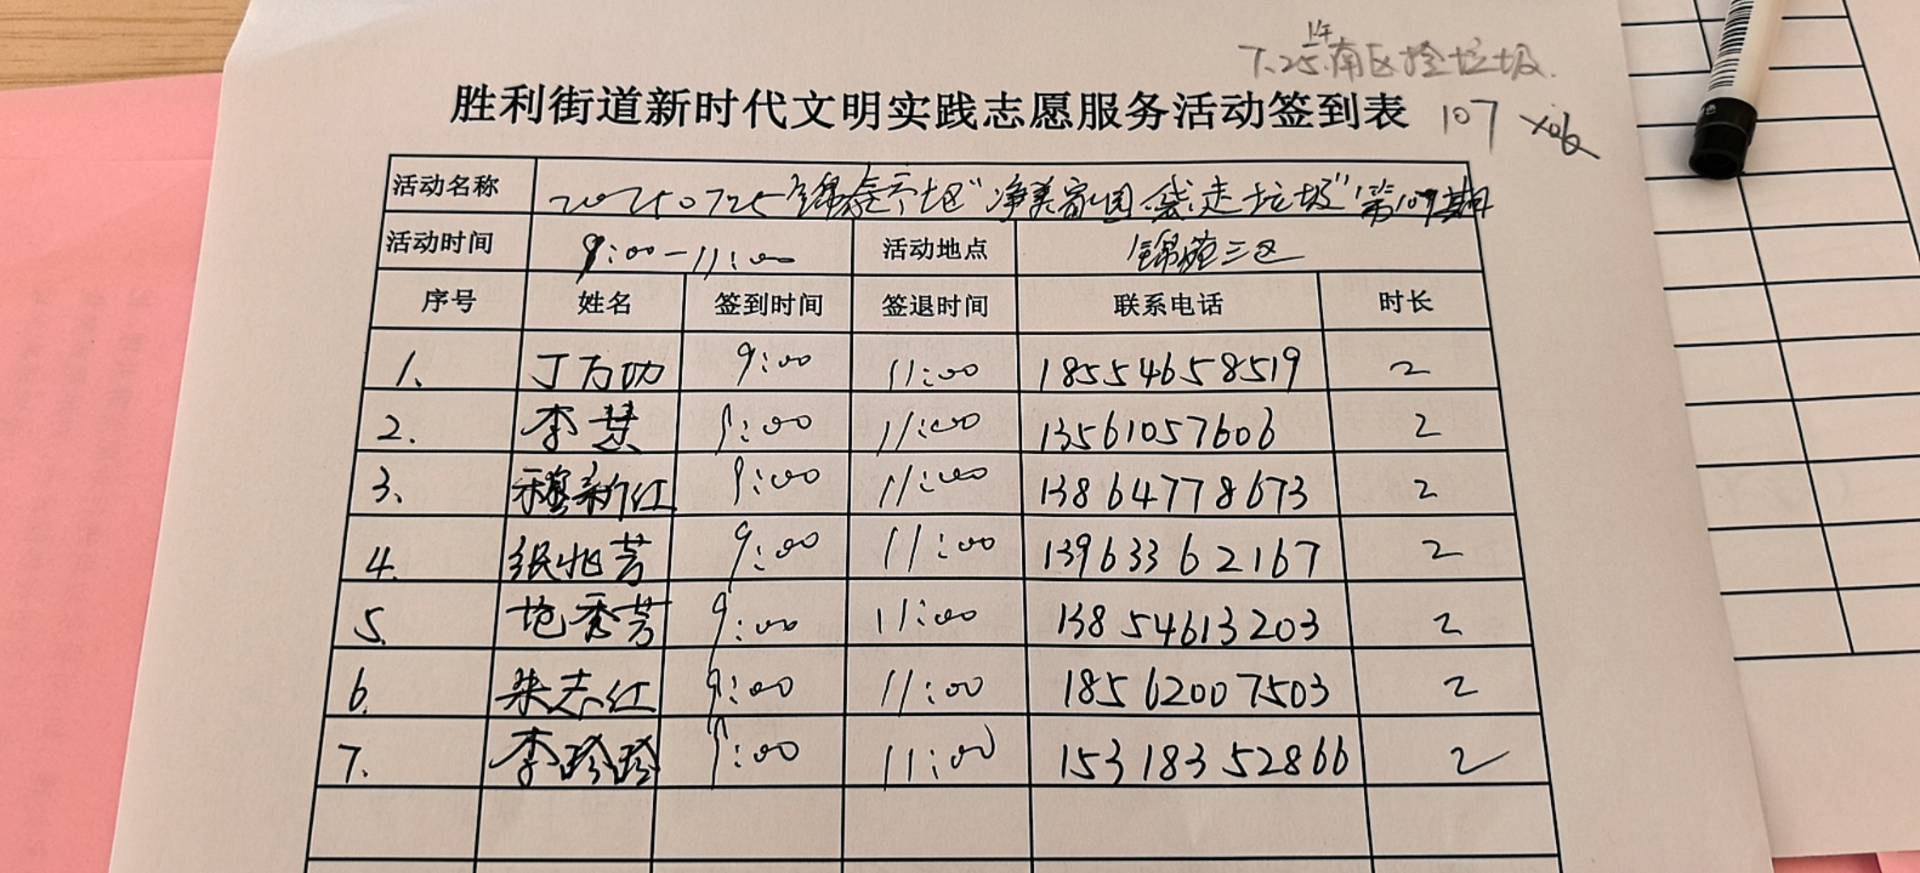 7.25.南区捡垃圾.
胜利街道新时代文明实践志愿服务活动签到表 107
活动名称 20250725锦苑社区"净美家园.袋走垃圾"第107期
活动时间 9:00-11:00 活动地点 锦苑三区
序号 姓名 签到时间 签退时间 联系电话 时长
1. 丁万功 9:00 11:00 18554658519 2
2. 李慧 9:00 11:00 13561057606 2
3. 穆新红 9:00 11:00 13864778673 2
4. 9:00 11:00 13963362167 2
5. 秀芳 9:00 11:00 13854613203 2
6. 朱志红 9:00 11:00 18562007503 2
7. 李珍珍 9:00 11:00 15318352866 2